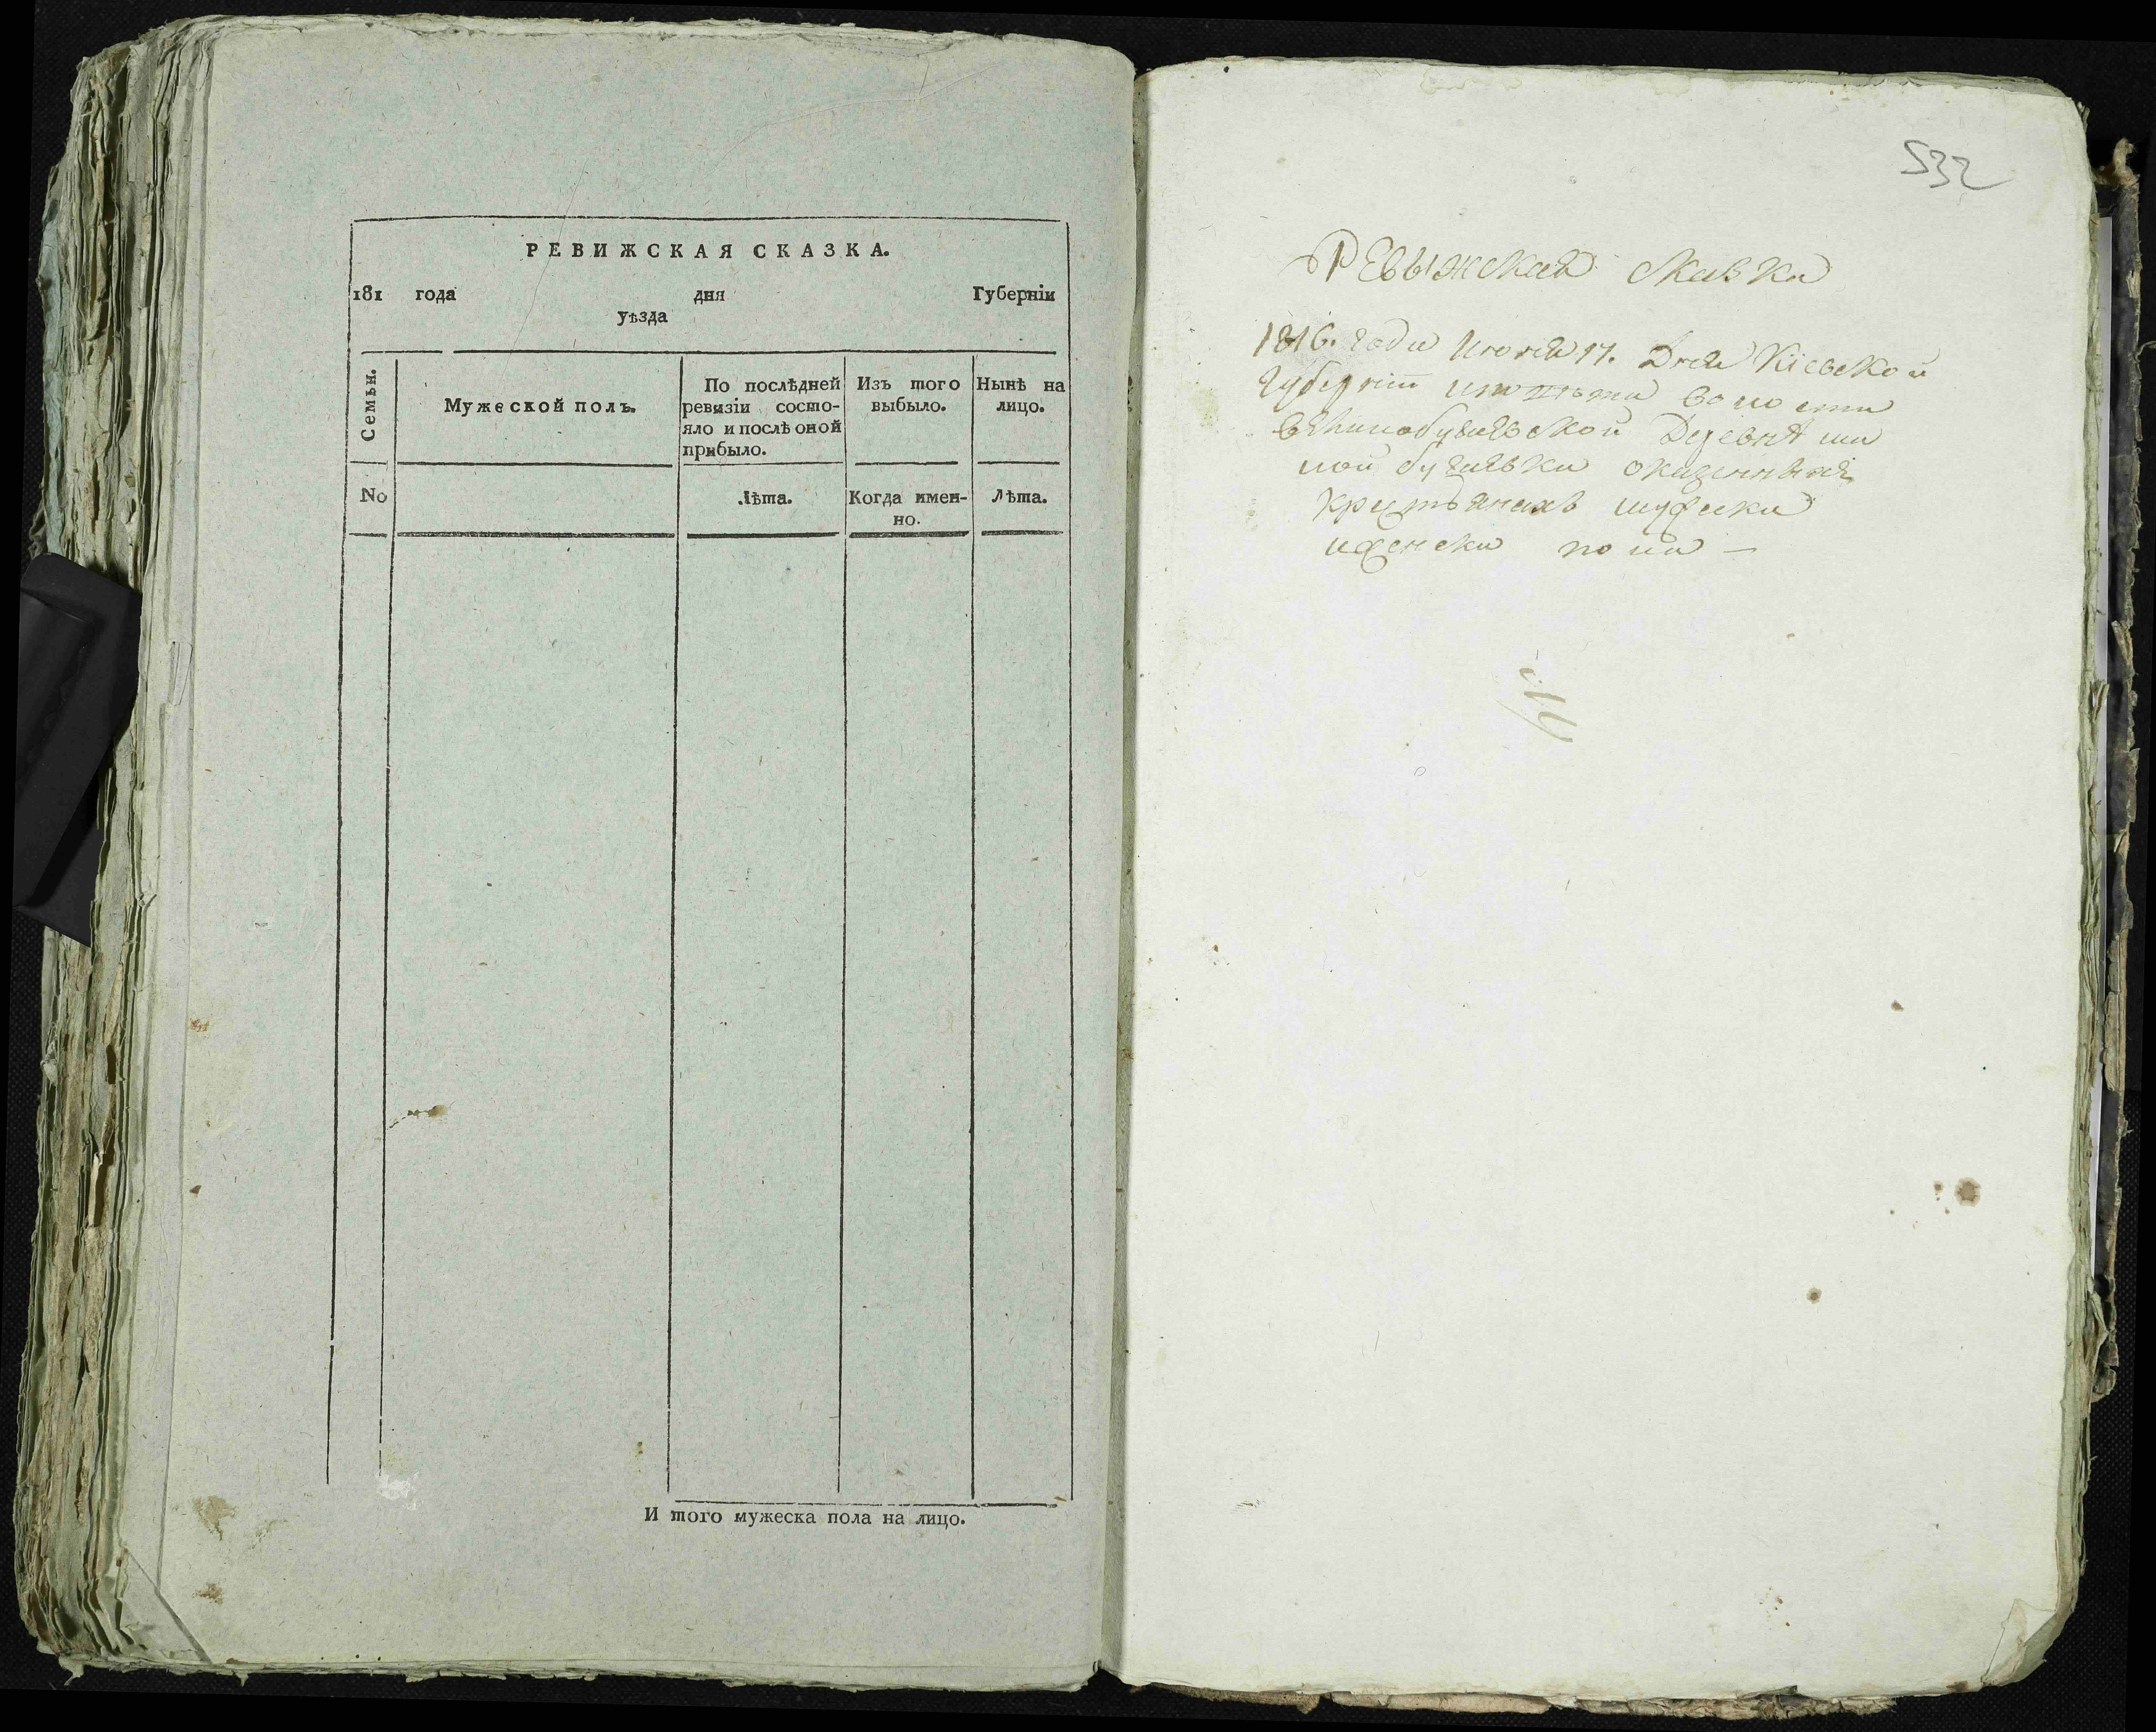 РЕВИЖСКАЯ СКАЗКА.
181 года дня Губерніи
уѣзда
Семьи.
Мужеской полъ.
По послѣдней ревизіи состо-
яло и послѣ оной
прибыло.
Изъ того
выбыло.
Нынѣ на
лицо.
No
Лѣта.
Когда имен-
но.
Лѣта.
И того мужеска пола на лицо.
532
Ревыжская сказка
1816. года Июня 17. Дня Кіевской
Губерніи
Деревнѣ ма
лой бугаевки оказенныхъ
крестьянахъ мужска
иженска пола —